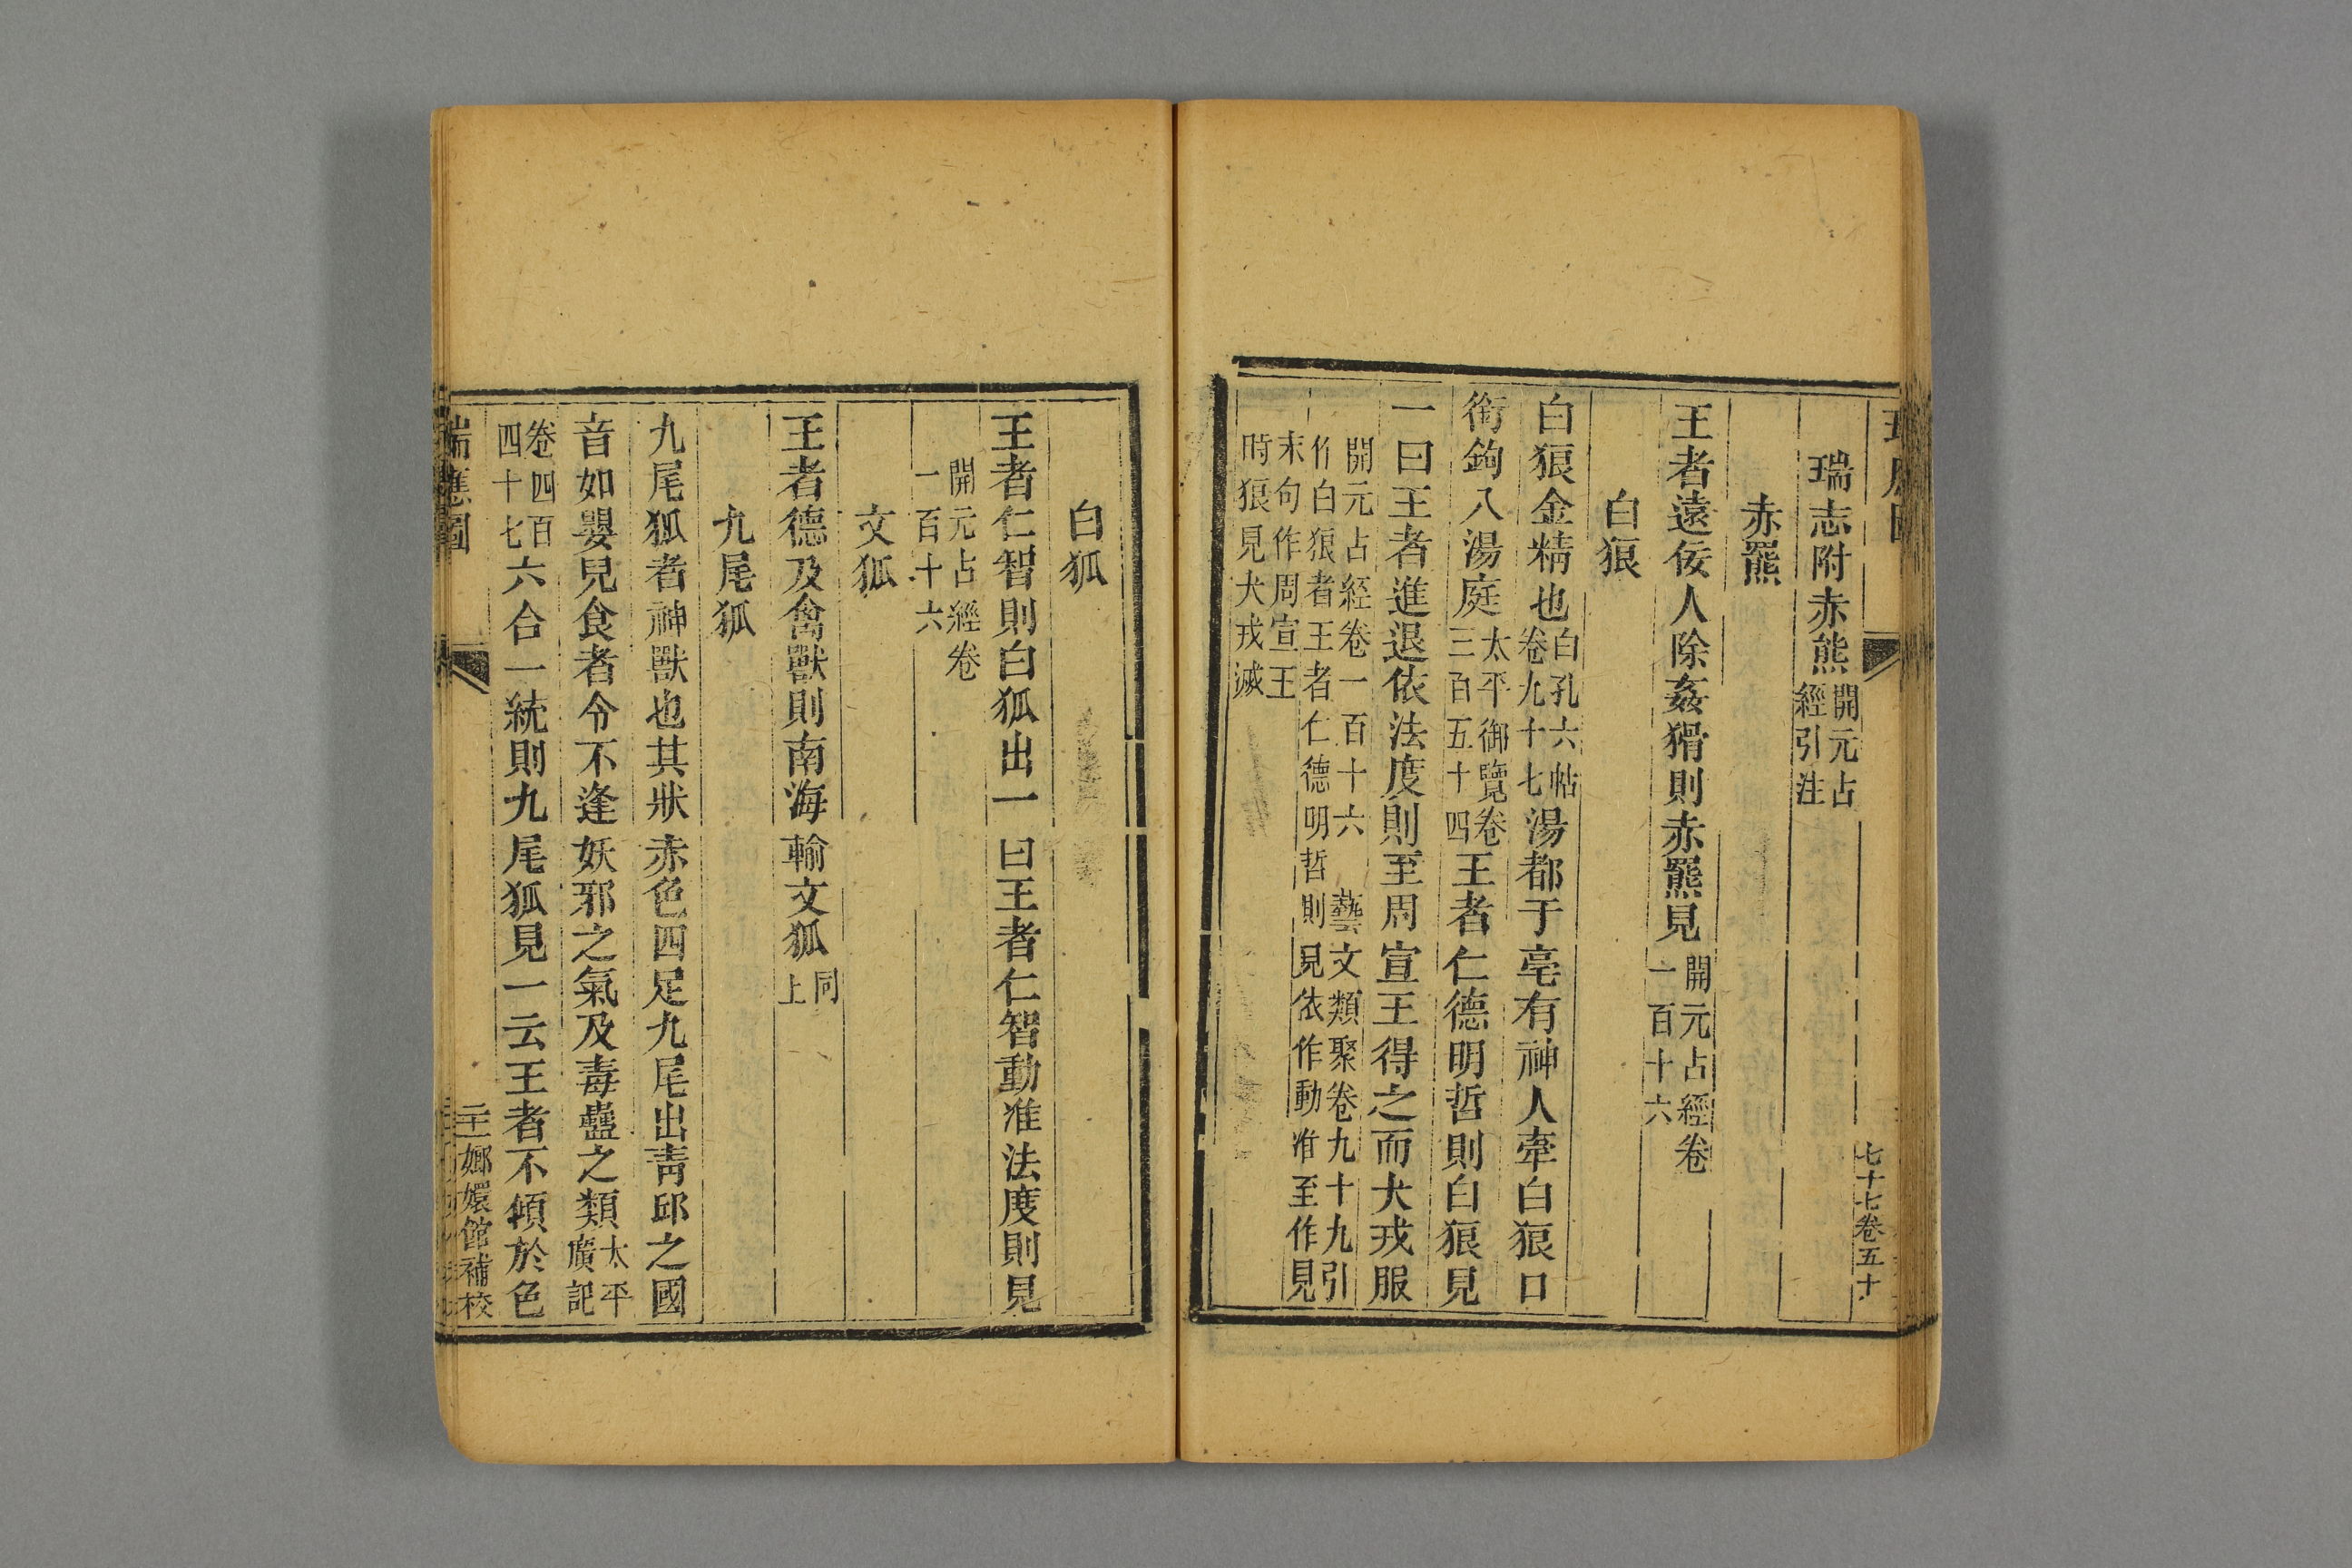 瑞志附赤熊開元占經引注
赤羆
王者遠佞人除姦猾則赤羆見開元占經卷一百十六
白狼
白狼金精也白孔六帖卷九十七湯都于亳有神人牽白狼口
銜鉤入湯庭太平御覽卷三百五十四王者仁德明哲則白狼見
一曰王者進退依法度則至周宣王得之而犬戎服
開元占經卷一百十六 藝文類聚卷九十九引
作白狼者王者仁德明哲則見依作動准至作見
末句作周宣王
時狼見犬戎滅
七十七卷五十
白狐
王者仁智則白狐出一曰王者仁智動准法度則見
開元占經卷一百十六
文狐
王者德及禽獸則南海輸文狐同上
九尾狐
九尾狐者神獸也其狀赤色四足九尾出靑邱之國
音如嬰兒食者令不逢妖邪之氣及毒蠱之類太平廣記
卷四百四十七六合一統則九尾狐見一云王者不傾於色
瑞應圖
嫏嬛館補校